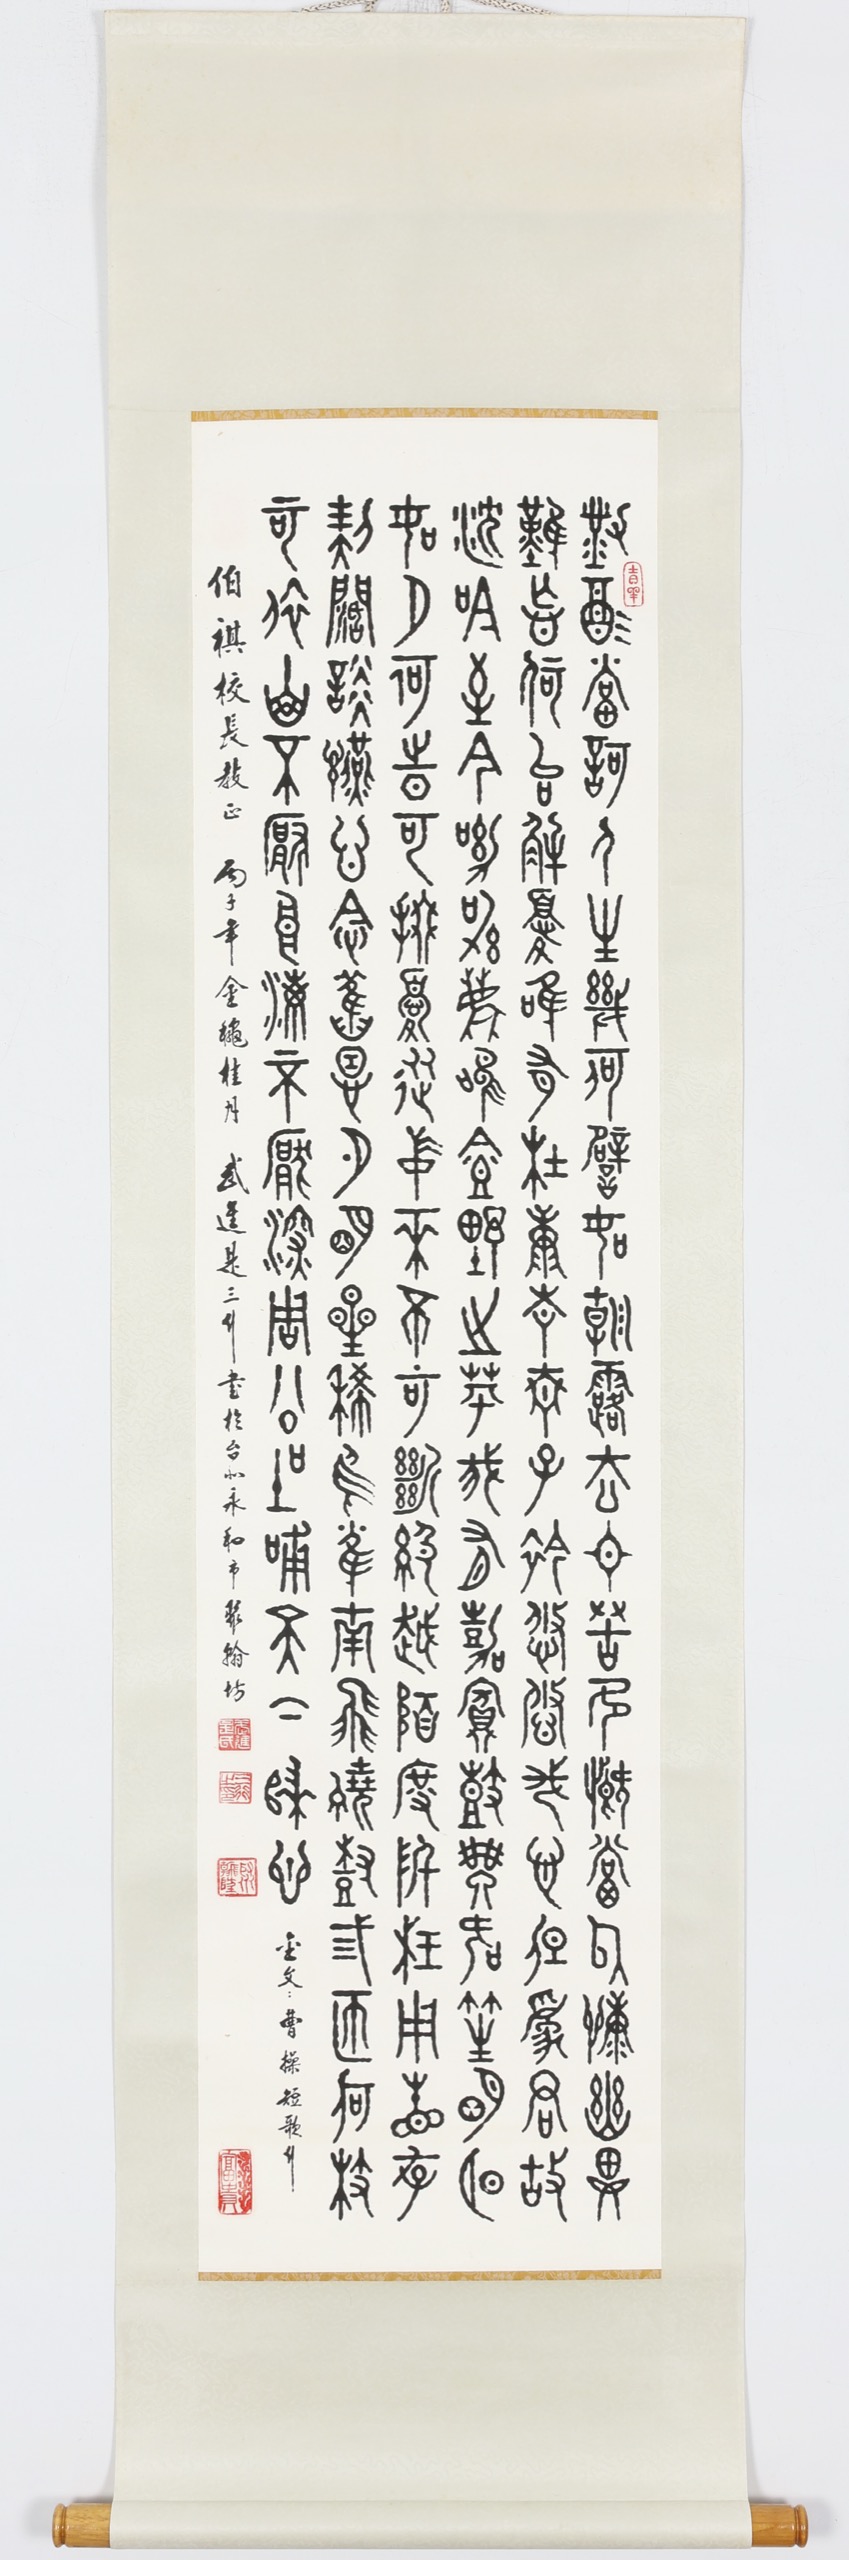 對酒當歌人生幾何譬如朝露去日苦多慨當以慷幽思
難忘何以解憂唯有杜康青青子衿悠悠我心但為君故
沈吟至今呦呦鹿鳴食野之苹我有嘉賓鼓瑟吹笙明明
如月何時可掇憂從中來不可斷絕越陌度阡枉用相存
契闊談讌心念舊恩月明星稀烏鵲南飛繞樹三匝何枝
可依山不厭高海不厭深周公吐哺天下歸心 金文：曹操短歌行
伯祺校長教正 丙子年金龝桂月 武進是三行書於台北永和市聚翰坊